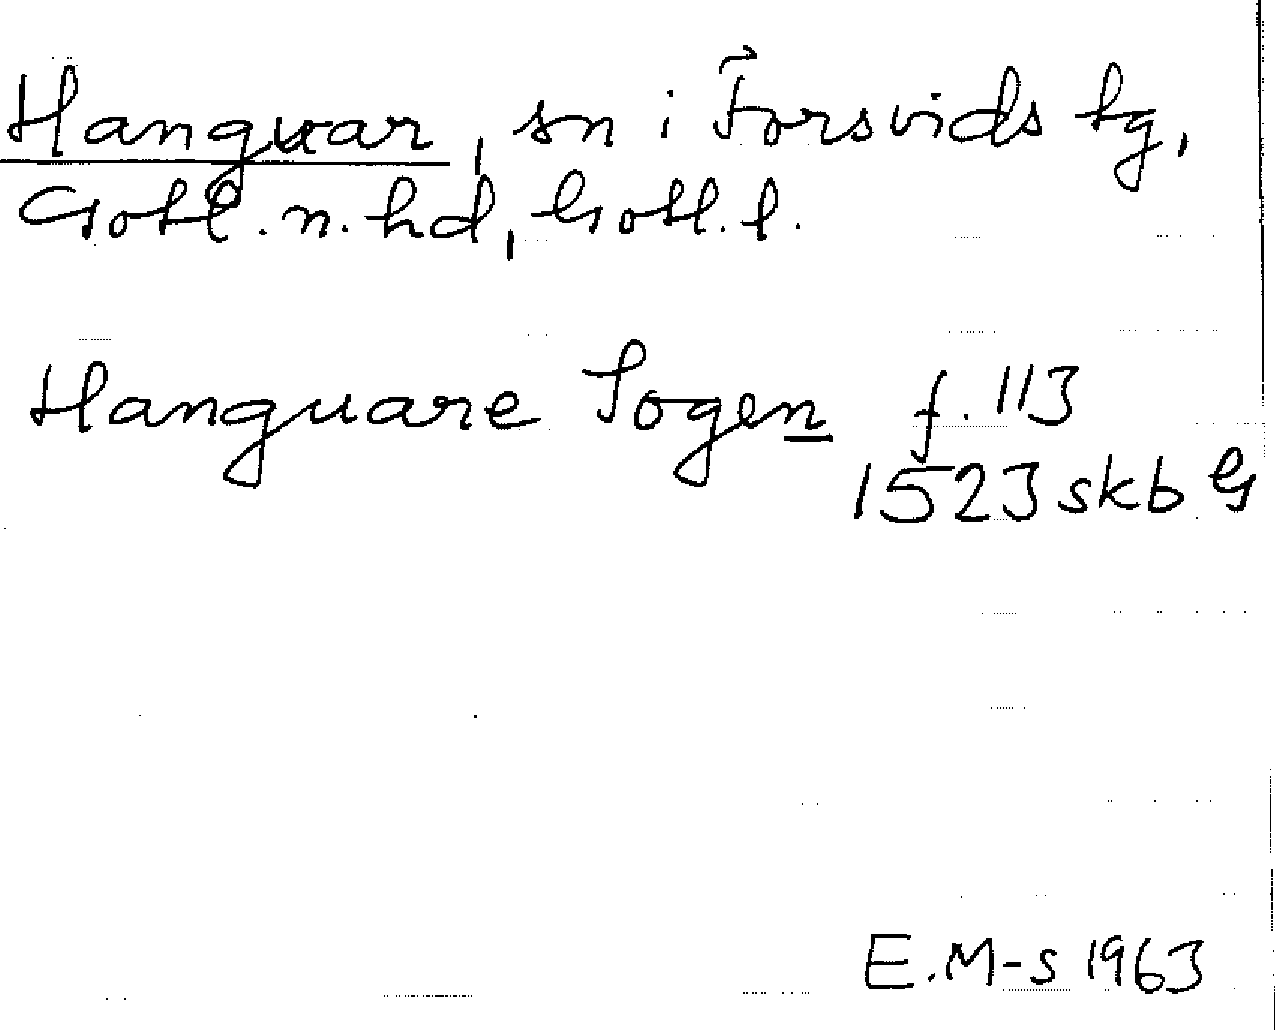 Hangvar, sn i Forsvids tg,
Gotl. n. hd, Gotl. l.
Hanguare Sogen f. 113
1523 skb G
E.M-s 1963